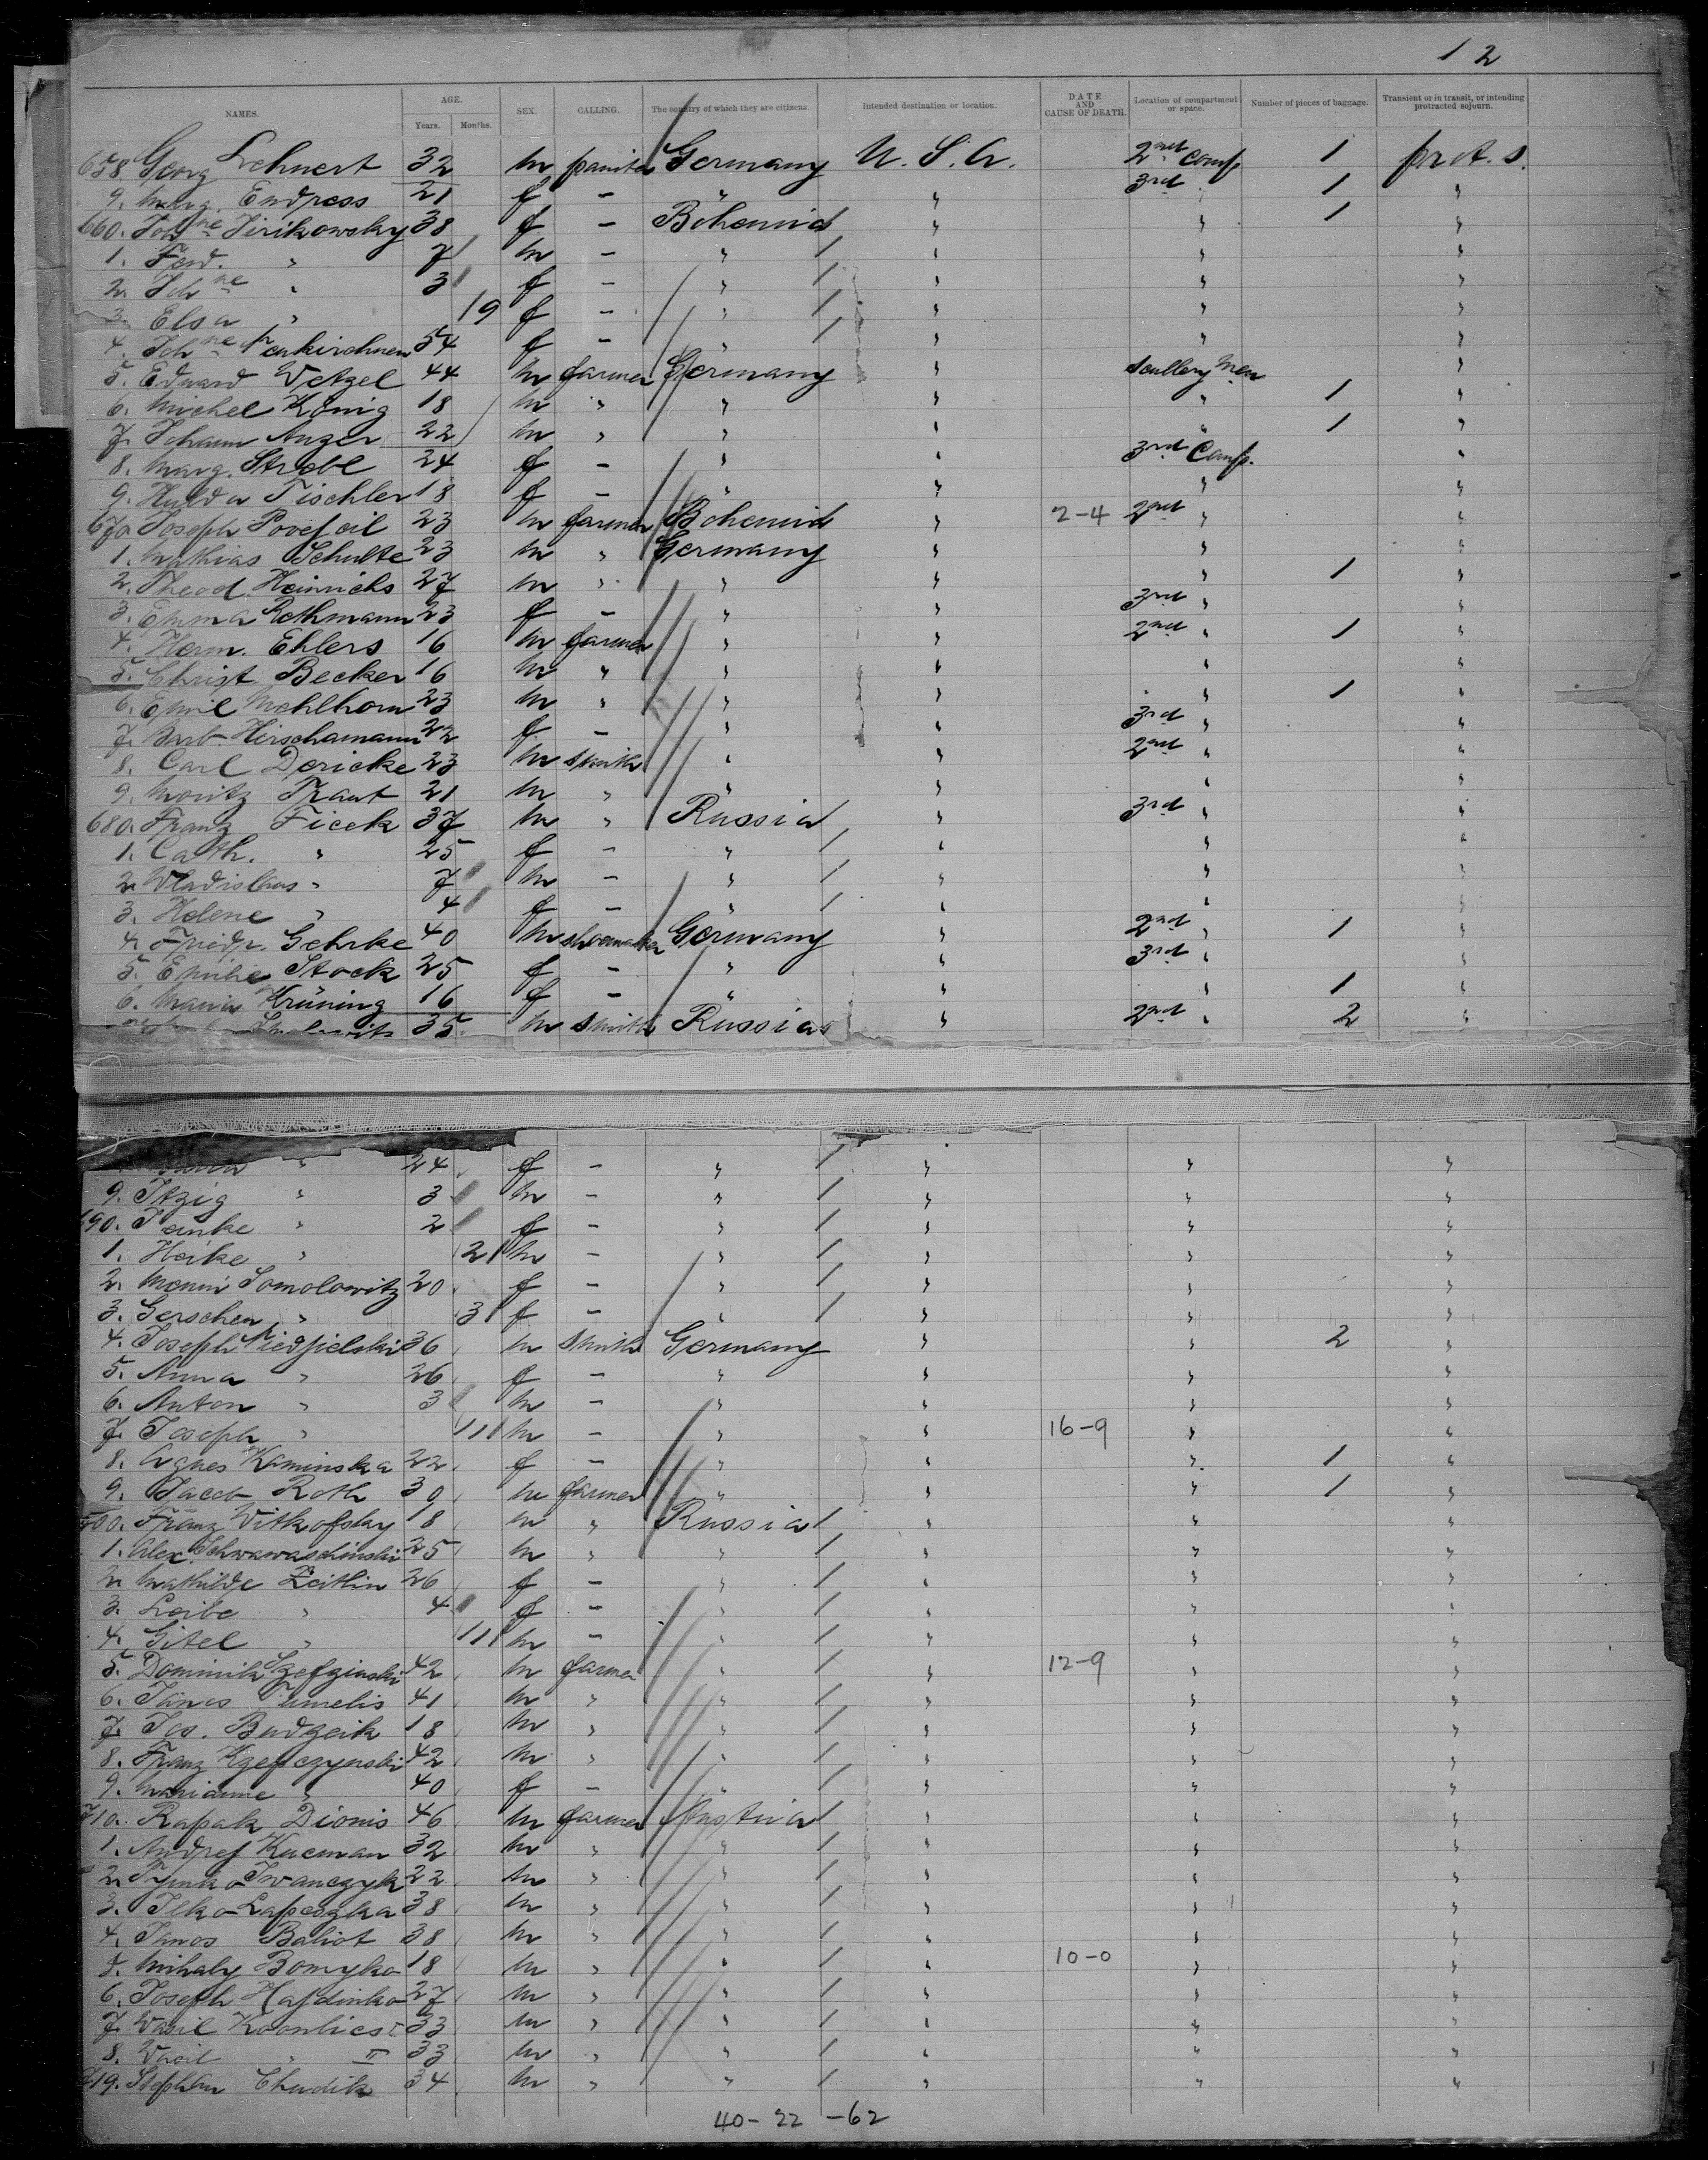 12
NAMES. AGE. Years. Months. SEX. CALLING. The country of which they are citizens. Intended destination or location. DATE AND CAUSE OF DEATH. Location of compartment or space. Number of pieces of baggage. Transient or in transit, or intending protracted sojourn.
658. Georg Lehnert 32 m painter Germany U. S. A. 2nd comp 1 prot. s.
9. Marg. Endress 21 f - " " 3rd 1 "
660. Johne Jirikowsky 38 f - Bohemia " " 1 "
1. Ferd. " 7 m - " " " "
2. Johne " 3 f - " " " "
3. Elsa " 19 f - " " " "
4. Johne 54 f - " " " "
5. Eduard Wetzel 44 m farmer Germany " Scullery Men "
6. Michel König 18 m " " " " 1 "
7. Johann Anger 22 m " " " " 1 "
8. Marg. Strobl 24 f - " " 3rd Comp. "
9. Hulda Tischler 18 f - " " " "
670. Joseph 23 m farmer Bohemia " 2-4 2nd " "
1. Mathias Schulte 23 m " Germany " " "
2. Theod. Heinrichs 27 m " " " " 1 "
3. Emma Rothmann 23 f - " " 3rd " "
4. Herm. Ehlers 16 m farmer " " 2nd " 1 "
5. Christ. Becker 16 m " " " " "
6. Emil Mehlhorn 23 m " " " " 1 "
7. Barb. Hirschamann 22 f - " " 3rd " "
8. Carl Dericke 23 m smith " " 2nd " "
9. Moritz Traut 21 m " " " " "
680. Franz Ficek 37 m " Russia " 3rd " "
1. Cath. " 25 f - " " " "
2. Wladislaus " 7 m - " " " "
3. Helene " 4 f - " " " "
4. Friedr. Gehrke 40 m shoemaker Germany " 2nd " 1 "
5. Emilie Stock 25 f - " " 3rd " "
6. Maria Krüning 16 f - " " " 1 "
35 m smith Russia " 2nd " 2 "
" 24 f - " " " "
9. Itzig " 3 m - " " " "
690. " 2 f - " " " "
1. Heike " 2 m - " " " "
2. Somolowitz 20 f - " " " "
3. Gerschen " 3 f - " " " "
4. Joseph 36 m smith Germany " " 2 "
5. Anna " 26 f - " " " "
6. Anton " 3 m - " " " "
7. Joseph " 11 m - " " 16-9 " "
8. Agnes Kaminska 22 f - " " " 1 "
9. Jacob Roth 30 m farmer " " " 1 "
700. Franz Witkofsky 18 m " Russia " " "
1. Alex. Schwawaschinski 25 m " " " " "
2. Mathilde Zeitlin 26 f - " " " "
3. Leibe " 4 f - " " " "
4. Gitel " 11 m - " " " "
5. Dominik 42 m farmer " " 12-9 " "
6. Janos 41 m " " " " "
7. Jos. Budzeik 18 m " " " " "
8. Franz 42 m " " " " "
9. Marianne " 40 f - " " " "
710. Rapak Dionis 46 m farmer Austria " " "
1. Andrej Kucman 32 m " " " " "
2. Iwanczyk 22 m " " " " "
3. Ilko 38 m " " " " "
4. Janos Baliot 38 m " " " " "
5. Mihaly Bomyko 18 m " " " 10-0 " "
6. Joseph Hajdinko 27 m " " " " "
7. Wasil 33 m " " " " "
8. Wasil " II 33 m " " " " "
719. Stephan Chudik 34 m " " " " "
40 - 22 - 62